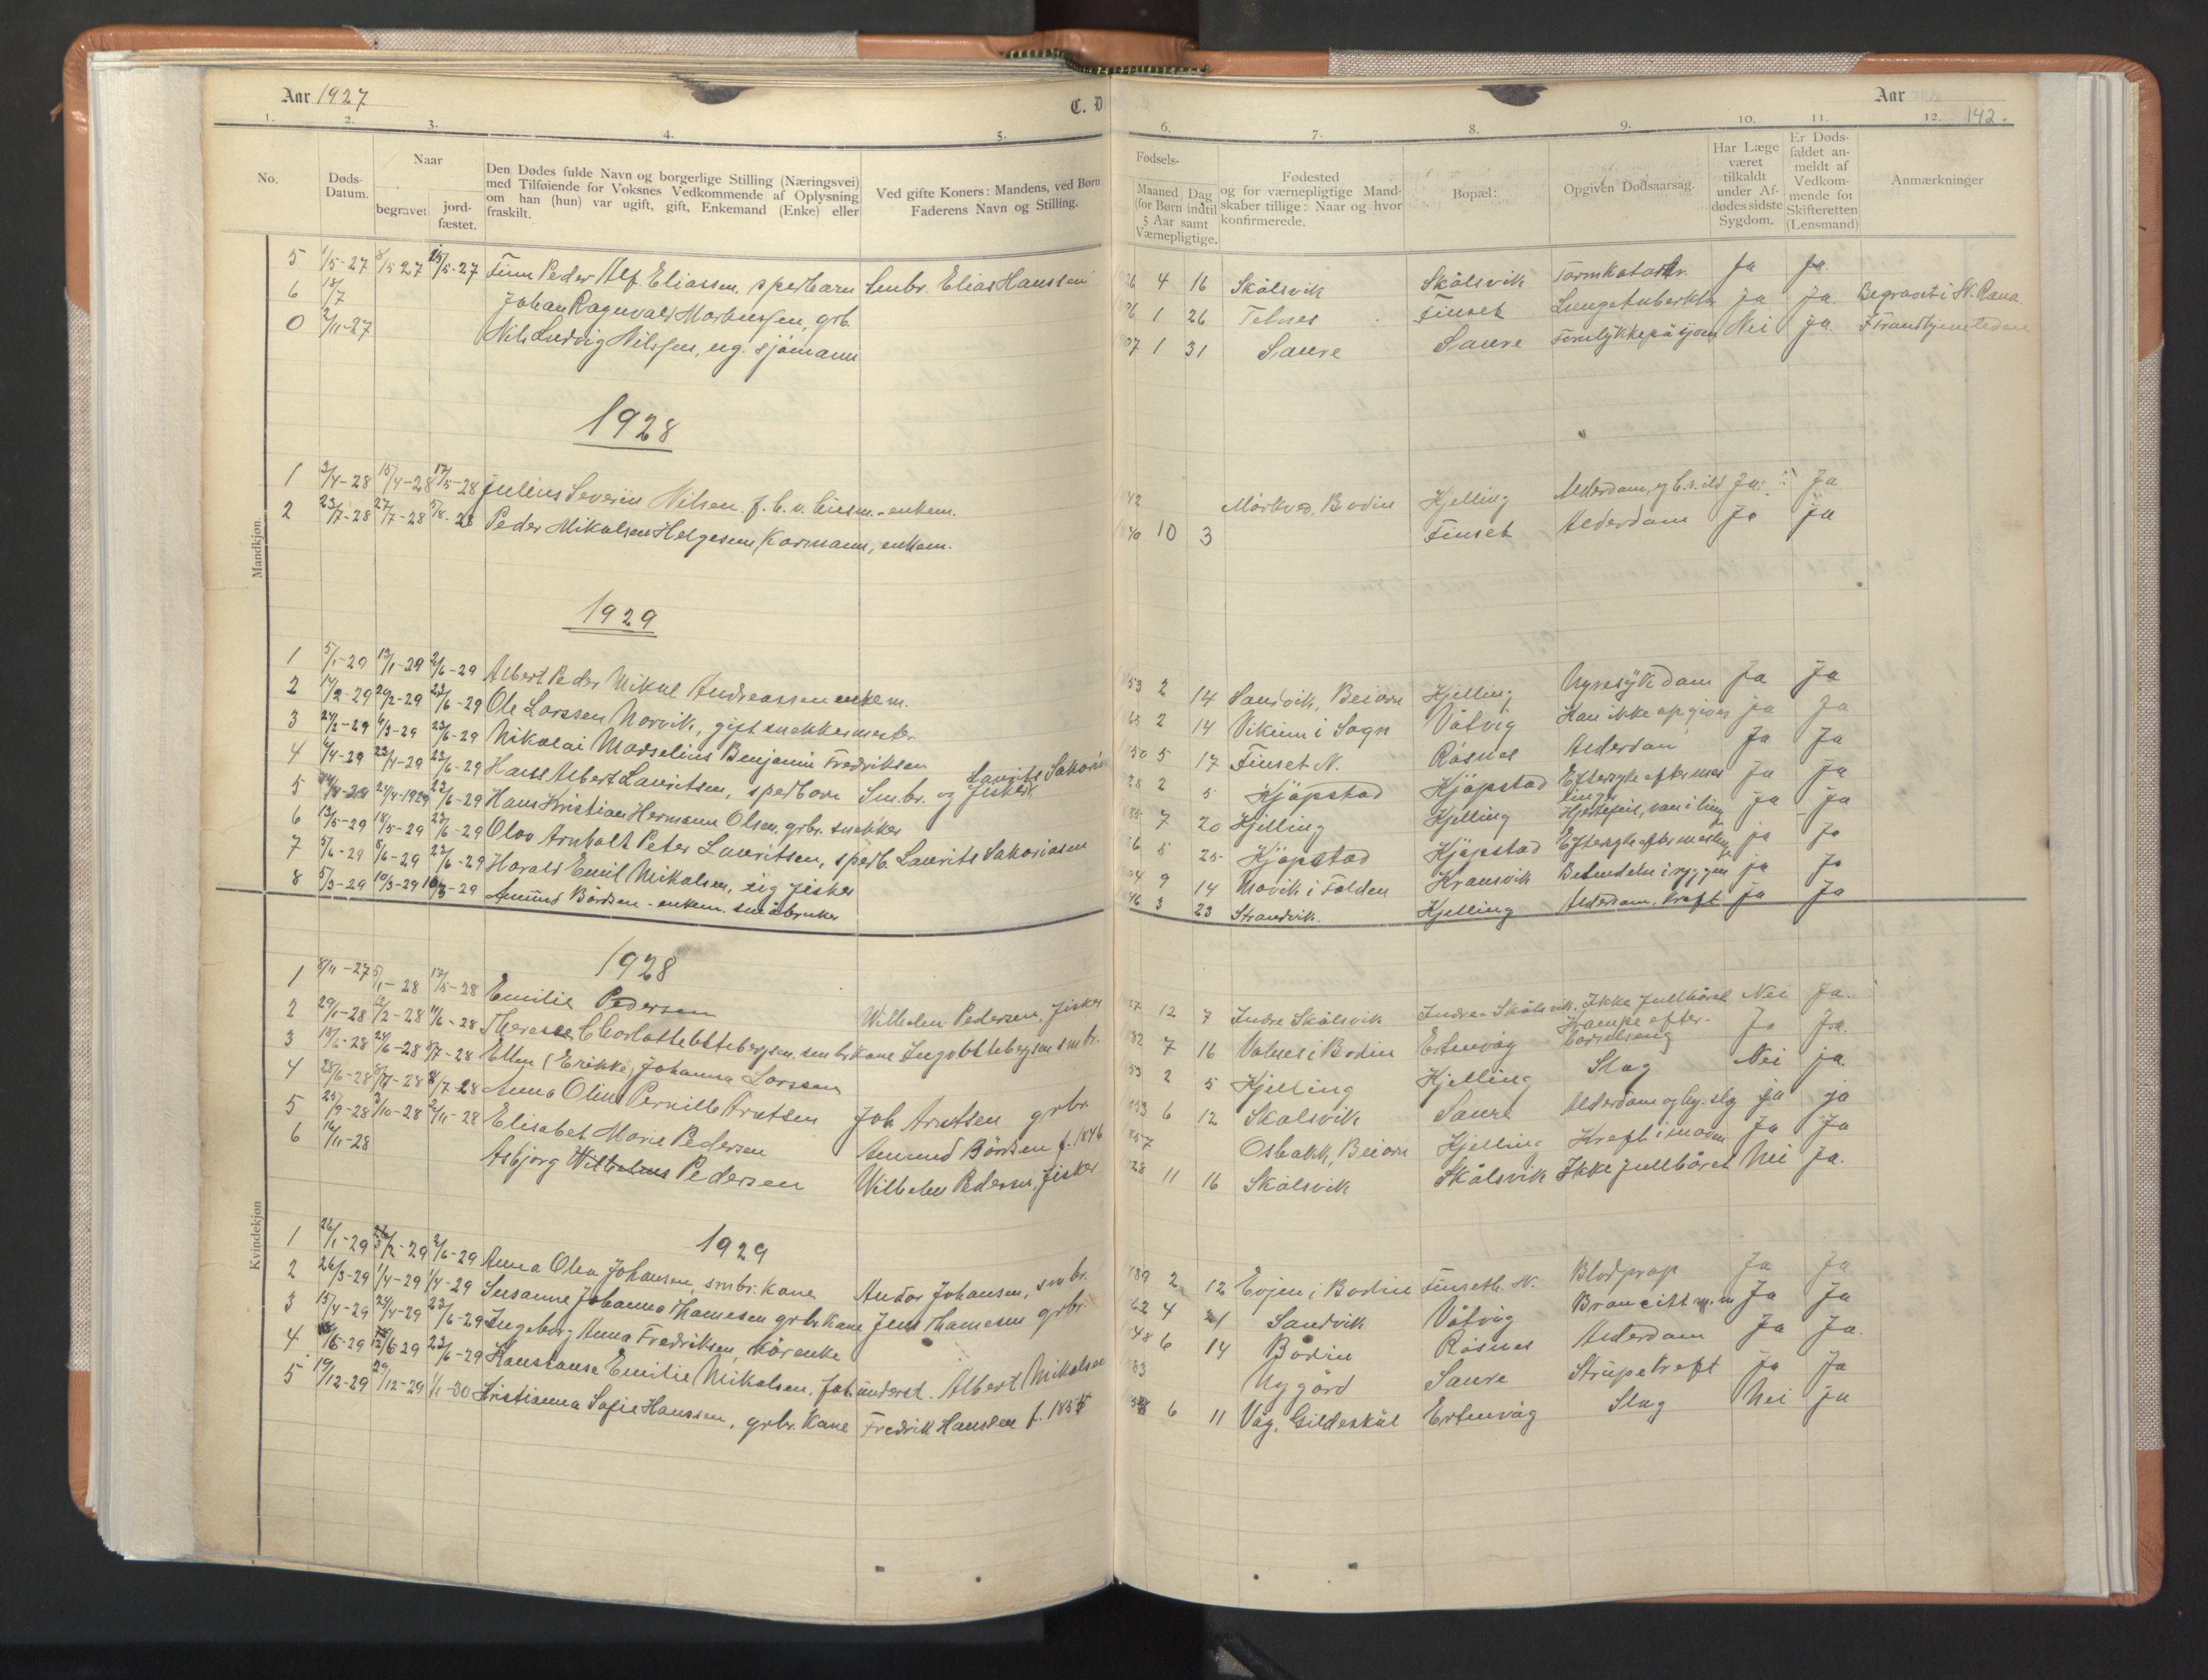 Aar 1927
C. D
Aar
142.
1. 2. 3. 4. 5. 6. 7. 8. 9. 10. 11. 12.
No.
Døds-Datum.
Naar
begravet
jord-fæstet.
Den Dødes fulde Navn og borgerlige Stilling (Næringsvei)
med Tilføiende for Voksnes Vedkommende af Oplysning
om han (hun) var ugift, gift, Enkemand (Enke) eller
fraskilt.
Ved gifte Koners: Mandens, ved Børn
Faderens Navn og Stilling.
Fødsels-
Maaned Dag
(for Børn indtil
5 Aar samt
Værnepligtige.
Fødested
og for værnepligtige Mand-
skaber tillige: Naar og hvor
konfirmerede.
Bopæl:
Opgiven Dødsaarsag.
Har Læge
været
tilkaldt
under Af-
dødes sidste
Sygdom.
Er Døds-
faldet an-
meldt af
Vedkom-
mende for
Skifteretten
(Lensmand)
Anmærkninger
Mandkjøn
5 1/5-27 8/5 27 15/5-27 Finn Peder Alf. Eliassen, spedbarn Smbr. Elias Hanssen 26 4 16 Skålsvik Skålsvik Tarmkatarr. Ja Ja.
6 18/7 Johan Ragnvald Markussen, grb. 1 26 Telnes Finset Lungetuberkl. Ja Ja. Begravet i N. Rana.
0 2/11-27 Nils Ludvig Nilssen, ug. sjømann 07 1 31 Saure Saure Forulykke på sjøen Nei Ja
1928
1 3/4-28 15/4-28 17/5-28 Julius Severin Nilsen. f. b. v. - enkem. 42 Mørkved, Bodin Hjelling Alderdom, Ja Ja
2 23/7-28 27/7-28 5/8-28 Peder Mikalsen Helgesen, Kårmann, enkem. 40 10 3 Finset Alderdom Ja Ja
1929
1 5/1-29 13/1-29 2/6-29 Albert Peder Mikal Andreassen enkem. 53 2 14 Sandvik, Beiarn Hjelling Nyresykdom Ja Ja
2 17/2-29 2-29 23/6-29 Ole Larssen Norvik, gift snekkermester 2 14 Vikum i Sogn Våtvig Kan ikke opgives Ja Ja
3 2-29 3-29 23/6-29 Nikolai Marselius Benjamin Fredriksen 50 5 17 Finset N. Røsnes Alderdom Ja Ja
4 4-29 23/4-29 23/6-29 Hans Albert Lauritsen, spedbarn Sm.br. og fisker Laurits Sakarias 28 2 5 Kjøpstad Kjøpstad Eftersyke efter meslinger Ja Ja
5 24/4-1929 23/6-29 Hans Kristian Hermann Olsen, grbr. snekker 7 20 Hjelling Hjelling Hjertefeil, Ja Ja
6 13/5-29 18/5-29 23/6-29 Olav Arnholt Peter Lauritsen, spedb. Laurits Sakariasen 26 5 25 Kjøpstad Kjøpstad Ja Ja
7 5/6-29 8/6-29 23/6-29 Harald Emil Mikalsen, ug fisker 04 9 14 Movik i Folden Kransvik Betendelse i ryggen Ja Ja
8 5/3-29 10/3-29 3-29 Amund Bårdsen - enkem. småbruker 46 3 23 Strandvik. Hjelling Alderdom, kreft Ja Ja
Kvindekjøn
1928
1 8/11-27 5/1-28 17/5-28 Emilie Pedersen Wilhelm Pedersen, fisker 27 12 7 Indre Skålsvik Indre Skålsvik. Ikke fullbåret Nei Ja.
2 29/1-28 12/2-28 6-28 Therese Charlotte Ottebergsen. smbr kone Ingv. Ottebergsen smbr. 82 7 16 Valnes i Bodin Ertenvåg Krampe efter barselseng Ja Ja.
3 15/6-28 24/6-28 8/7-28 Ellen (Erikke) Johanna Larssen 53 2 5 Hjelling Hjelling Slag Nei Ja.
4 28/6-28 8/7-28 8/7-28 Anna Olina Pernille Arntsen Joh. Arntsen grbr. 53 6 12 Skålsvik Saure Alderdom og hj. slg Ja Ja
5 25/9-28 3/10-28 11-28 Elisabet Marie Pedersen Amund Bårdsen f. 1846 57 Osbakk, Beiarn Hjelling Kreft i maven Ja Ja
6 16/11-28 Asbjørg Wilhelms Pedersen Wilhelm Pedersen, fisker 28 11 16 Skålsvik Skålsvik Ikke fullbåret Nei Ja.
1929
1 26/1-29 2-29 2/6-29 Anna Olea Johansen, smbr. kone Andor Johansen, smbr. 89 2 12 Evjen i Bodin Finset N. Blodprop Ja Ja
2 26/3-29 1/4-29 1/4-29 Susanne Johanna Thomesen grbr kone Jens Thomesen grbr. 62 4 21 Sandvik Våtvig Ja Ja
3 15/4-29 24/4-29 23/6-29 Ingeborg Anna Fredriksen, kårenke 48 6 14 Bodin Røsnes Alderdom Ja Ja.
4 5-29 6 29 23/6-29 Hanstanse Emilie Mikalsen, underst. Albert Mikalsen 83 Nygård Saure Strupekreft Ja Ja
5 19/12-29 29/12-29 1/1-30 Kristianna Sofie Hanssen, grbr. kone Fredrik Hanssen f. 1855 6 11 Våg, Gildeskål Ertenvåg Slag Nei Ja